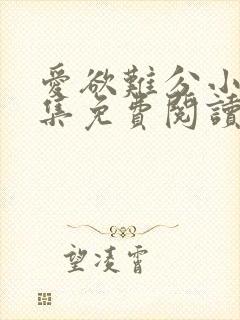 愛欲難分小
集免費閱讀
望凌霄